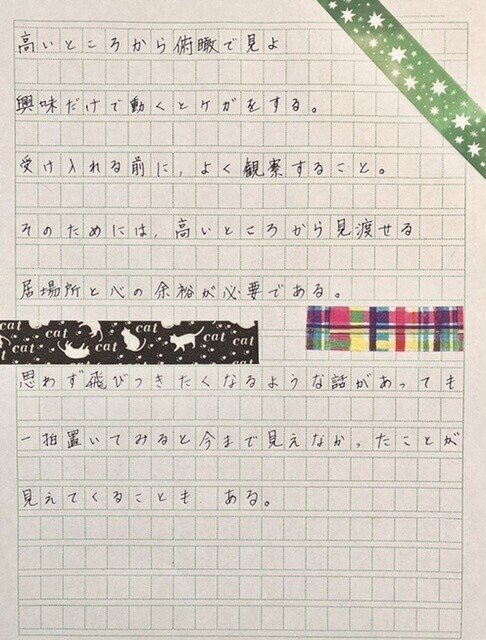 高いところから俯瞰で見よ
興味だけで動くとケガをする。
受け入れる前に,よく観察すること。
そのためには,高いところから見渡せる
居場所と心の余裕が必要である。
cat cat cat cat
cat cat cat
思わず飛びつきたくなるような話があっても
一拍置いてみると今まで見えなかったことが
見えてくることも ある。